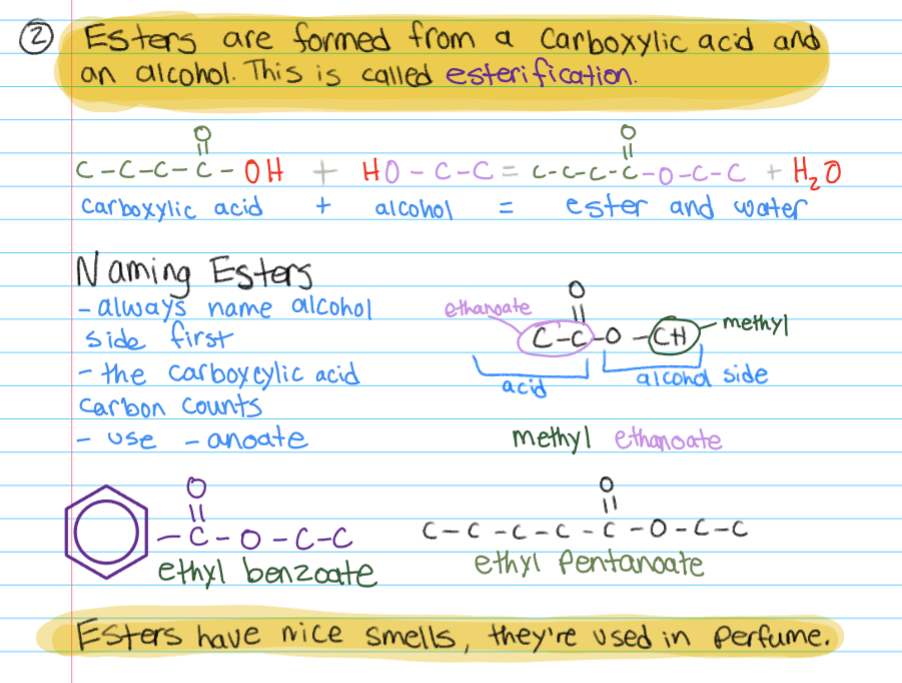 2 Esters are formed from a carboxylic acid and
an alcohol. This is called esterification.
O O
C-C-C-C-OH + HO-C-C = C-C-C-C-O-C-C + H₂O
carboxylic acid + alcohol = ester and water
Naming Esters
- always name alcohol
side first
- the carboxcylic acid
carbon counts
- use -anoate
O
ethanoate
C-C-O-CH methyl
acid alcohol side
methyl ethanoate
O
-C-O-C-C
ethyl benzoate
O
C-C-C-C-C-O-C-C
ethyl pentanoate
Esters have nice smells, they're used in perfume.